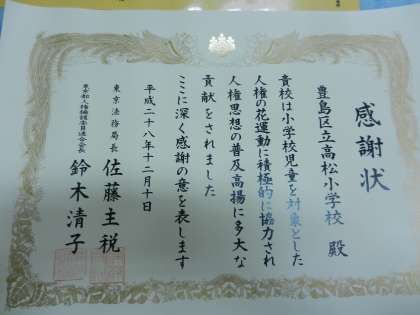 感謝状
豊島区立高松小学校 殿
貴校は小学校児童を対象とした
人権の花運動に積極的に協力され
人権思想の普及高揚に多大な
貢献をされました
ここに深く感謝の意を表します
平成二十八年十二月十日
東京法務局長 佐藤主税
東京都人権擁護委員連合会長 鈴木清子